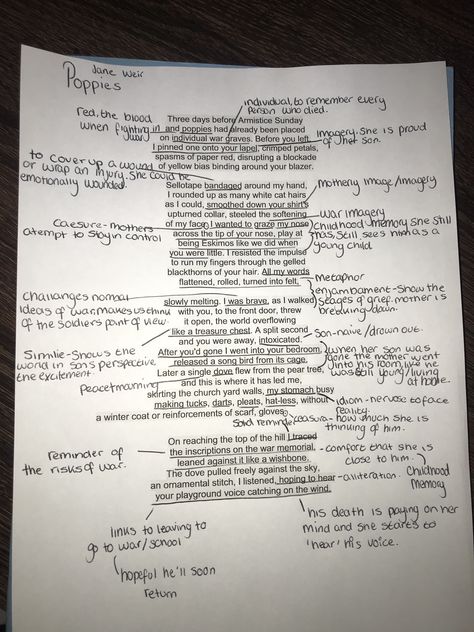 Jane Weir
Poppies
red, the blood
when fighting in
war
individual, to remember every
person who died.
Three days before Armistice Sunday
and poppies had already been placed
on individual war graves. Before you left,
I pinned one onto your lapel, crimped petals,
spasms of paper red, disrupting a blockade
of yellow bias binding around your blazer.
imagery. She is proud
of her son.
to cover up a wound
or wrap an injury. She could be
emotionally wounded.
Sellotape bandaged around my hand,
I rounded up as many white cat hairs
as I could, smoothed down your shirt's
upturned collar, steeled the softening
of my face. I wanted to graze my nose
across the tip of your nose, play at
being Eskimos like we did when
you were little. I resisted the impulse
to run my fingers through the gelled
blackthorns of your hair. All my words
flattened, rolled, turned into felt,
motherly image/imagery
war imagery
Childhood memory she still
has, still sees him as a
young child
Caesure-mothers
attempt to stay in control
metaphor
enjambament-show the
stages of grief. mother is
breaking down.
slowly melting. I was brave, as I walked
with you, to the front door, threw
it open, the world overflowing
like a treasure chest. A split second
and you were away, intoxicated.
After you'd gone I went into your bedroom,
released a song bird from its cage.
Later a single dove flew from the pear tree,
and this is where it has led me,
skirting the church yard walls, my stomach busy
making tucks, darts, pleats, hat-less, without
a winter coat or reinforcements of scarf, gloves.
Challanges normal
ideas of war, makes us think
of the soldiers point of view.
Son-naive/drawn out.
Simile-Shows the
world in sons perspective.
the excitement.
when her son was
gone the mother went
into his room, like he
was still young/living
at home.
Peace/mourning
idiom-nervose to face
reality.
Said reminder
ceasura- how much she is
thinking of him.
On reaching the top of the hill I traced
the inscriptions on the war memorial,
leaned against it like a wishbone.
The dove pulled freely against the sky,
an ornamental stitch, I listened, hoping to hear
your playground voice catching on the wind.
Reminder of
the risks of war.
- comfort that she is
close to him.
- aliteration.
Childhood
memory
links to leaving to
go to war/school
hopeful he'll soon
return
his death is playing on her
mind and she starts to
'hear' his voice.